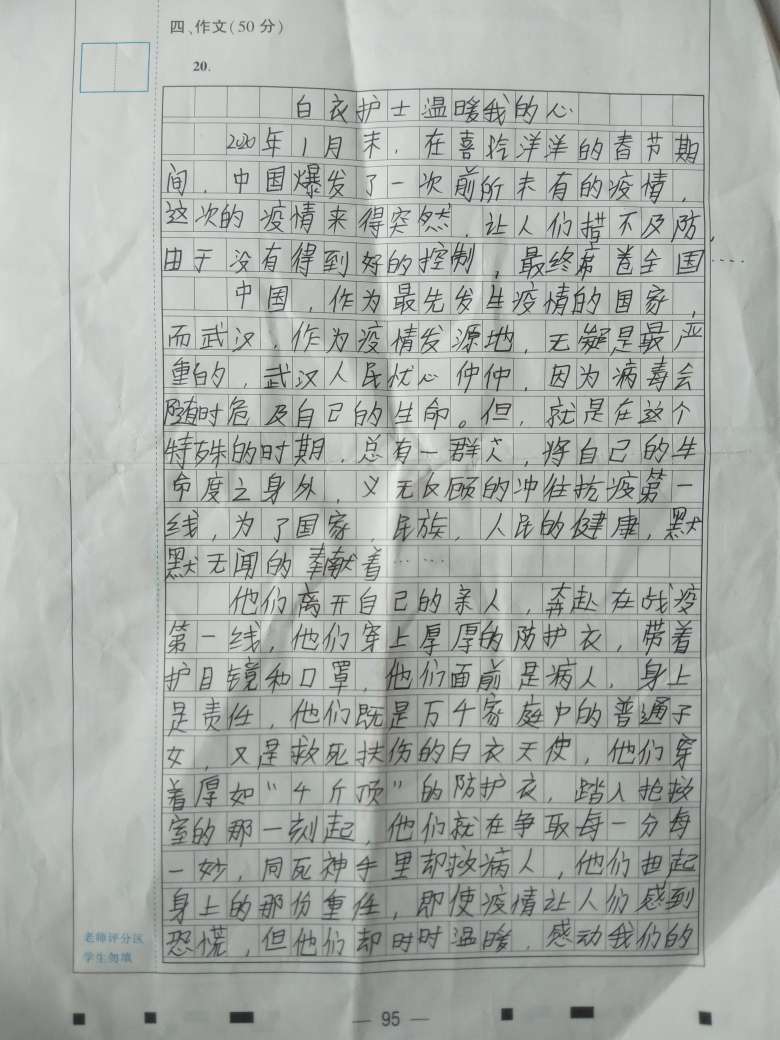 四、作文(50分)
20.
白衣护士温暖我的心
2020年1月末，在喜洋洋的春节期
间，中国爆发了一次前所未有的疫情，
这次的疫情来得突然，让人们措不及防，
由于没有得到好的控制，最终席卷全国……
中国，作为最先发生疫情的国家，
而武汉，作为疫情发源地，无疑是最严
重的，武汉人民忧心忡忡，因为病毒会
随时危及自己的生命。但，就是在这个
特殊的时期，总有一群人，将自己的生
命度之身外，义无反顾的冲往抗疫第一
线，为了国家，民族，人民的健康，默
默无闻的奉献着……
他们离开自己的亲人，奔赴在战疫
第一线，他们穿上厚厚的防护衣，带着
护目镜和口罩，他们面前是病人，身上
是责任，他们既是万千家庭中的普通子
女，又是救死扶伤的白衣天使，他们穿
着厚如“千斤顶”的防护衣，踏入抢救
室的那一刻起，他们就在争取每一分每
一妙，同死神手里却救病人，他们担起
身上的那份重任，即使疫情让人们感到
恐慌，但他们却时时温暖，感动我们的
老师评分区
学生勿填
— 95 —